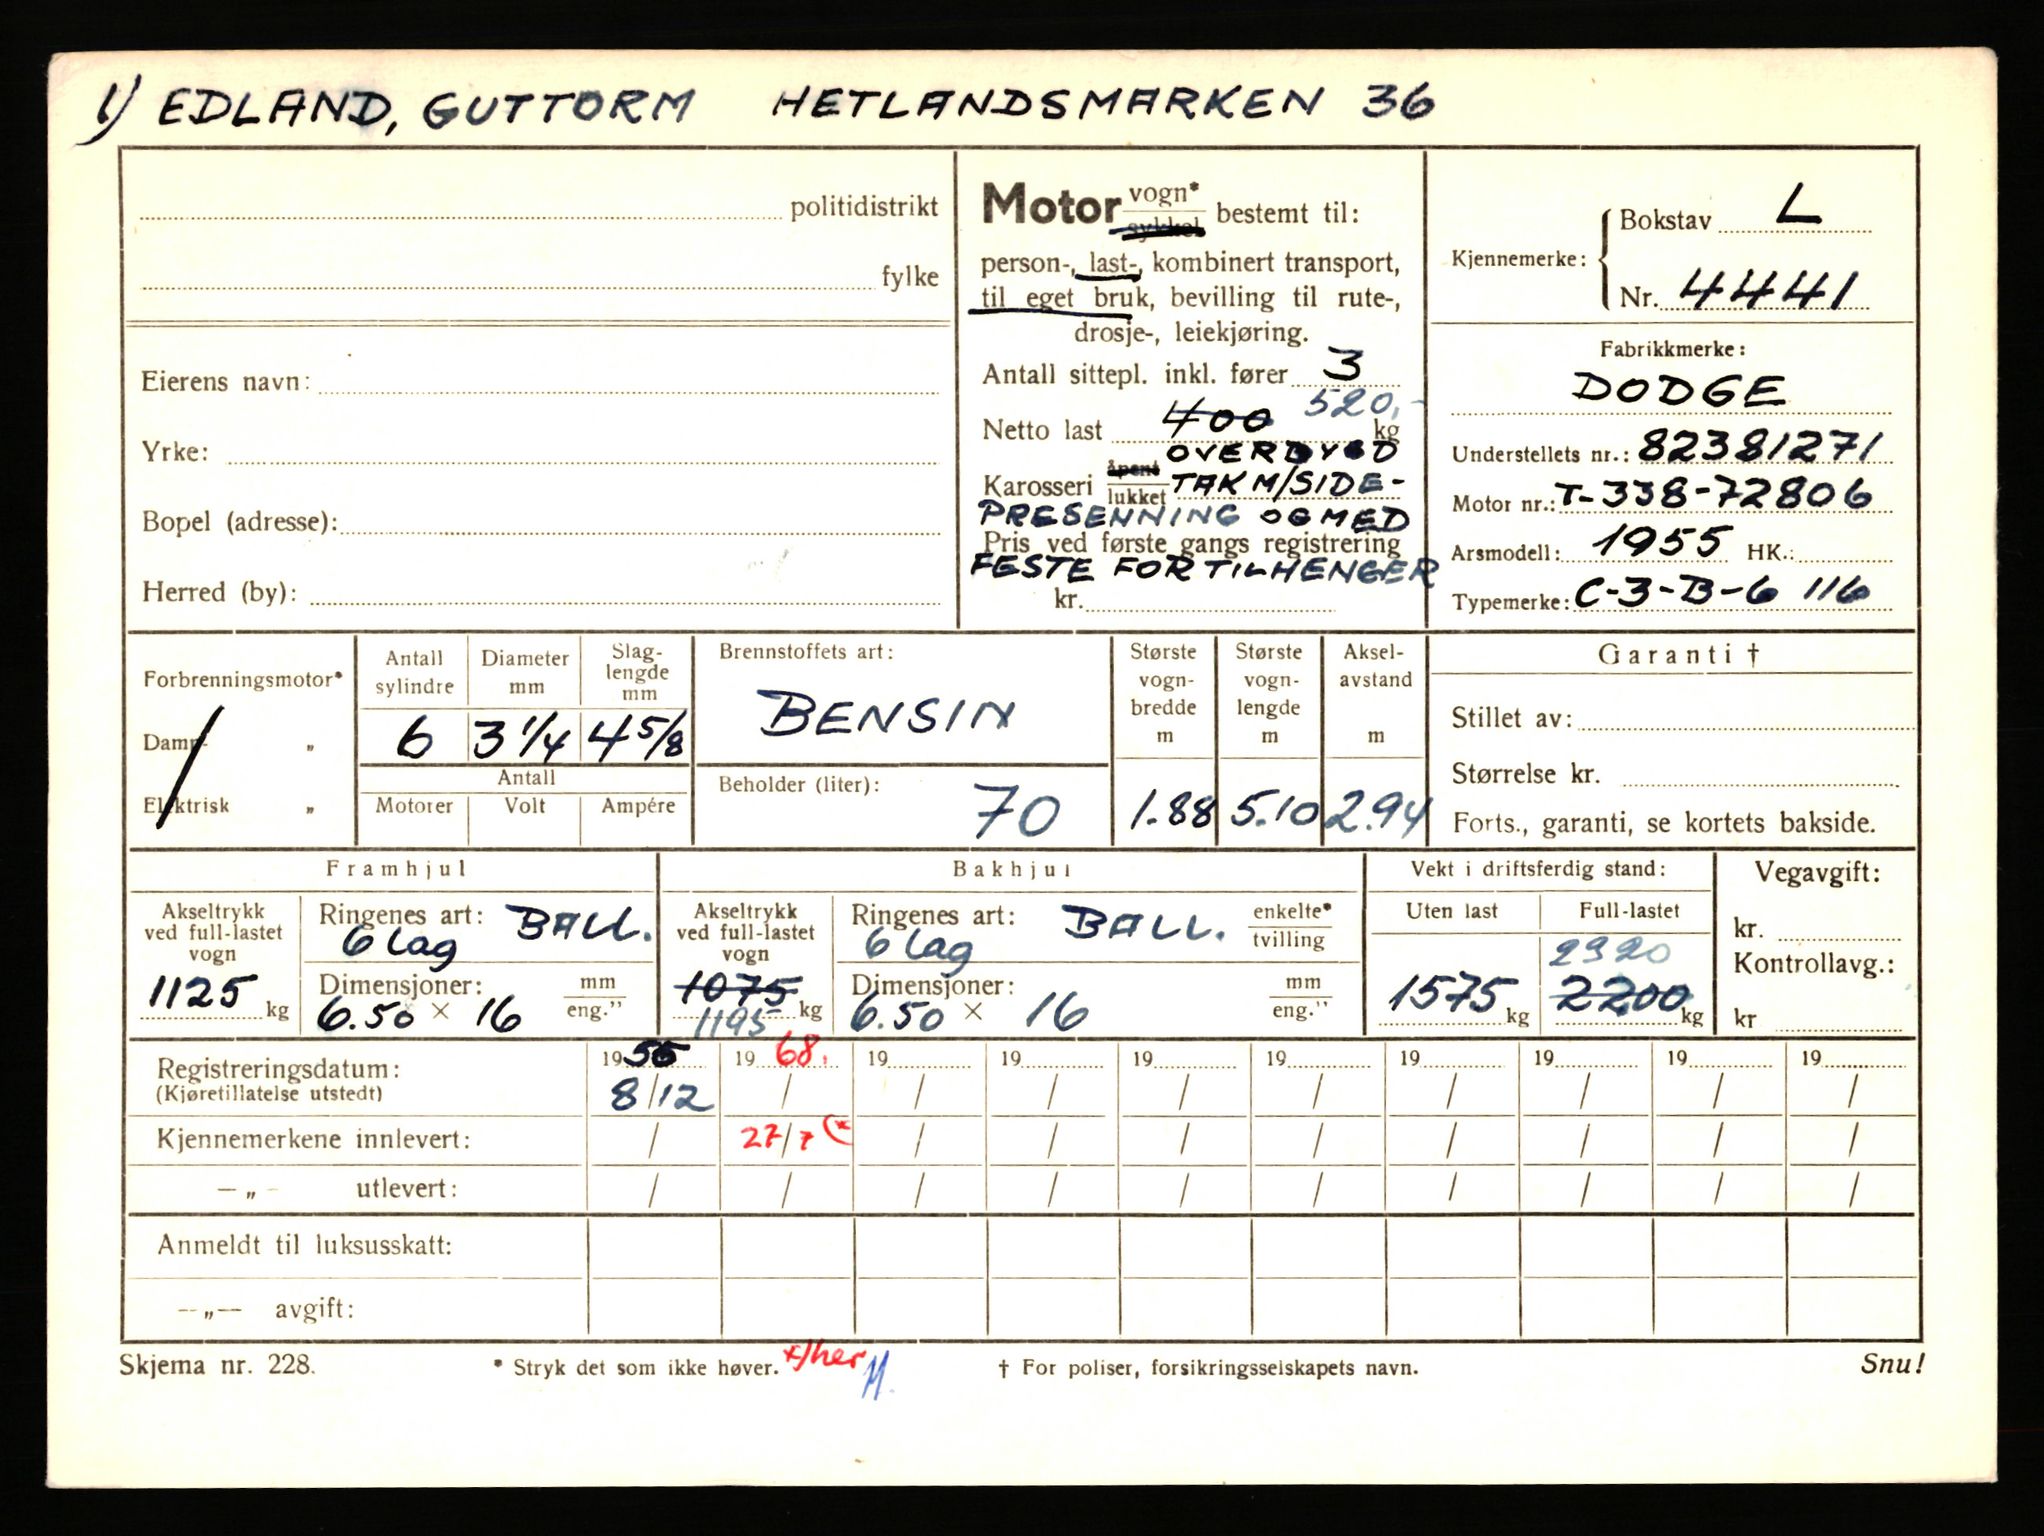 1) EDLAND, GUTTORM HETLANDSMARKEN 36
politidistrikt
fylke
Eierens navn:
Yrke:
Bopel (adresse):
Herred (by):
Motor vogn* sykkel bestemt til:
person-, last-, kombinert transport,
til eget bruk, bevilling til rute-,
drosje-, leiekjøring.
Antall sittepl. inkl. fører 3
Netto last 400 520,- kg
OVERBYGD
Karosseri åpent lukket TAK M/SIDE-
PRESENNING OG MED
Pris ved første gangs registrering
FESTE FOR TILHENGER
kr.
Kjennemerke: Bokstav L
Nr. 4441
Fabrikkmerke:
DODGE
Understellets nr.: 82381271
Motor nr.: T-338-72806
Arsmodell: 1955 HK.:
Typemerke: C-3-B-6 116
Forbrenningsmotor*
Damp- „
Elektrisk „
Antall sylindre
Diameter mm
Slag-lengde mm
6 3 1/4 4 5/8
Antall
Motorer Volt Ampére
Brennstoffets art:
BENSIN
Beholder (liter):
70
Største vogn-bredde m
1.88
Største vogn-lengde m
5.10
Aksel-avstand m
2.94
Garanti †
Stillet av:
Størrelse kr.
Forts., garanti, se kortets bakside.
Framhjul
Akseltrykk ved full-lastet vogn
1125 kg
Ringenes art: BALL.
6 lag
Dimensjoner: mm eng."
6.50 × 16
Bakhjul
Akseltrykk ved full-lastet vogn
1075 kg
1195
Ringenes art: BALL. enkelte* tvilling
6 lag
Dimensjoner: mm eng."
6.50 × 16
Vekt i driftsferdig stand:
Uten last Full-lastet
2320
1575 kg 2200 kg
Vegavgift:
kr.
Kontrollavg.:
kr
Registreringsdatum: 1955 1968. 19 19 19 19 19 19 19 19
(Kjøretillatelse utstedt) 8/12 / / / / / / / / /
Kjennemerkene innlevert: / 27/7 (* / / / / / / / /
—„— utlevert: / / / / / / / / / /
Anmeldt til luksusskatt:
—„— avgift:
Skjema nr. 228. * Stryk det som ikke høver. */her † For poliser, forsikringsselskapets navn. Snu!